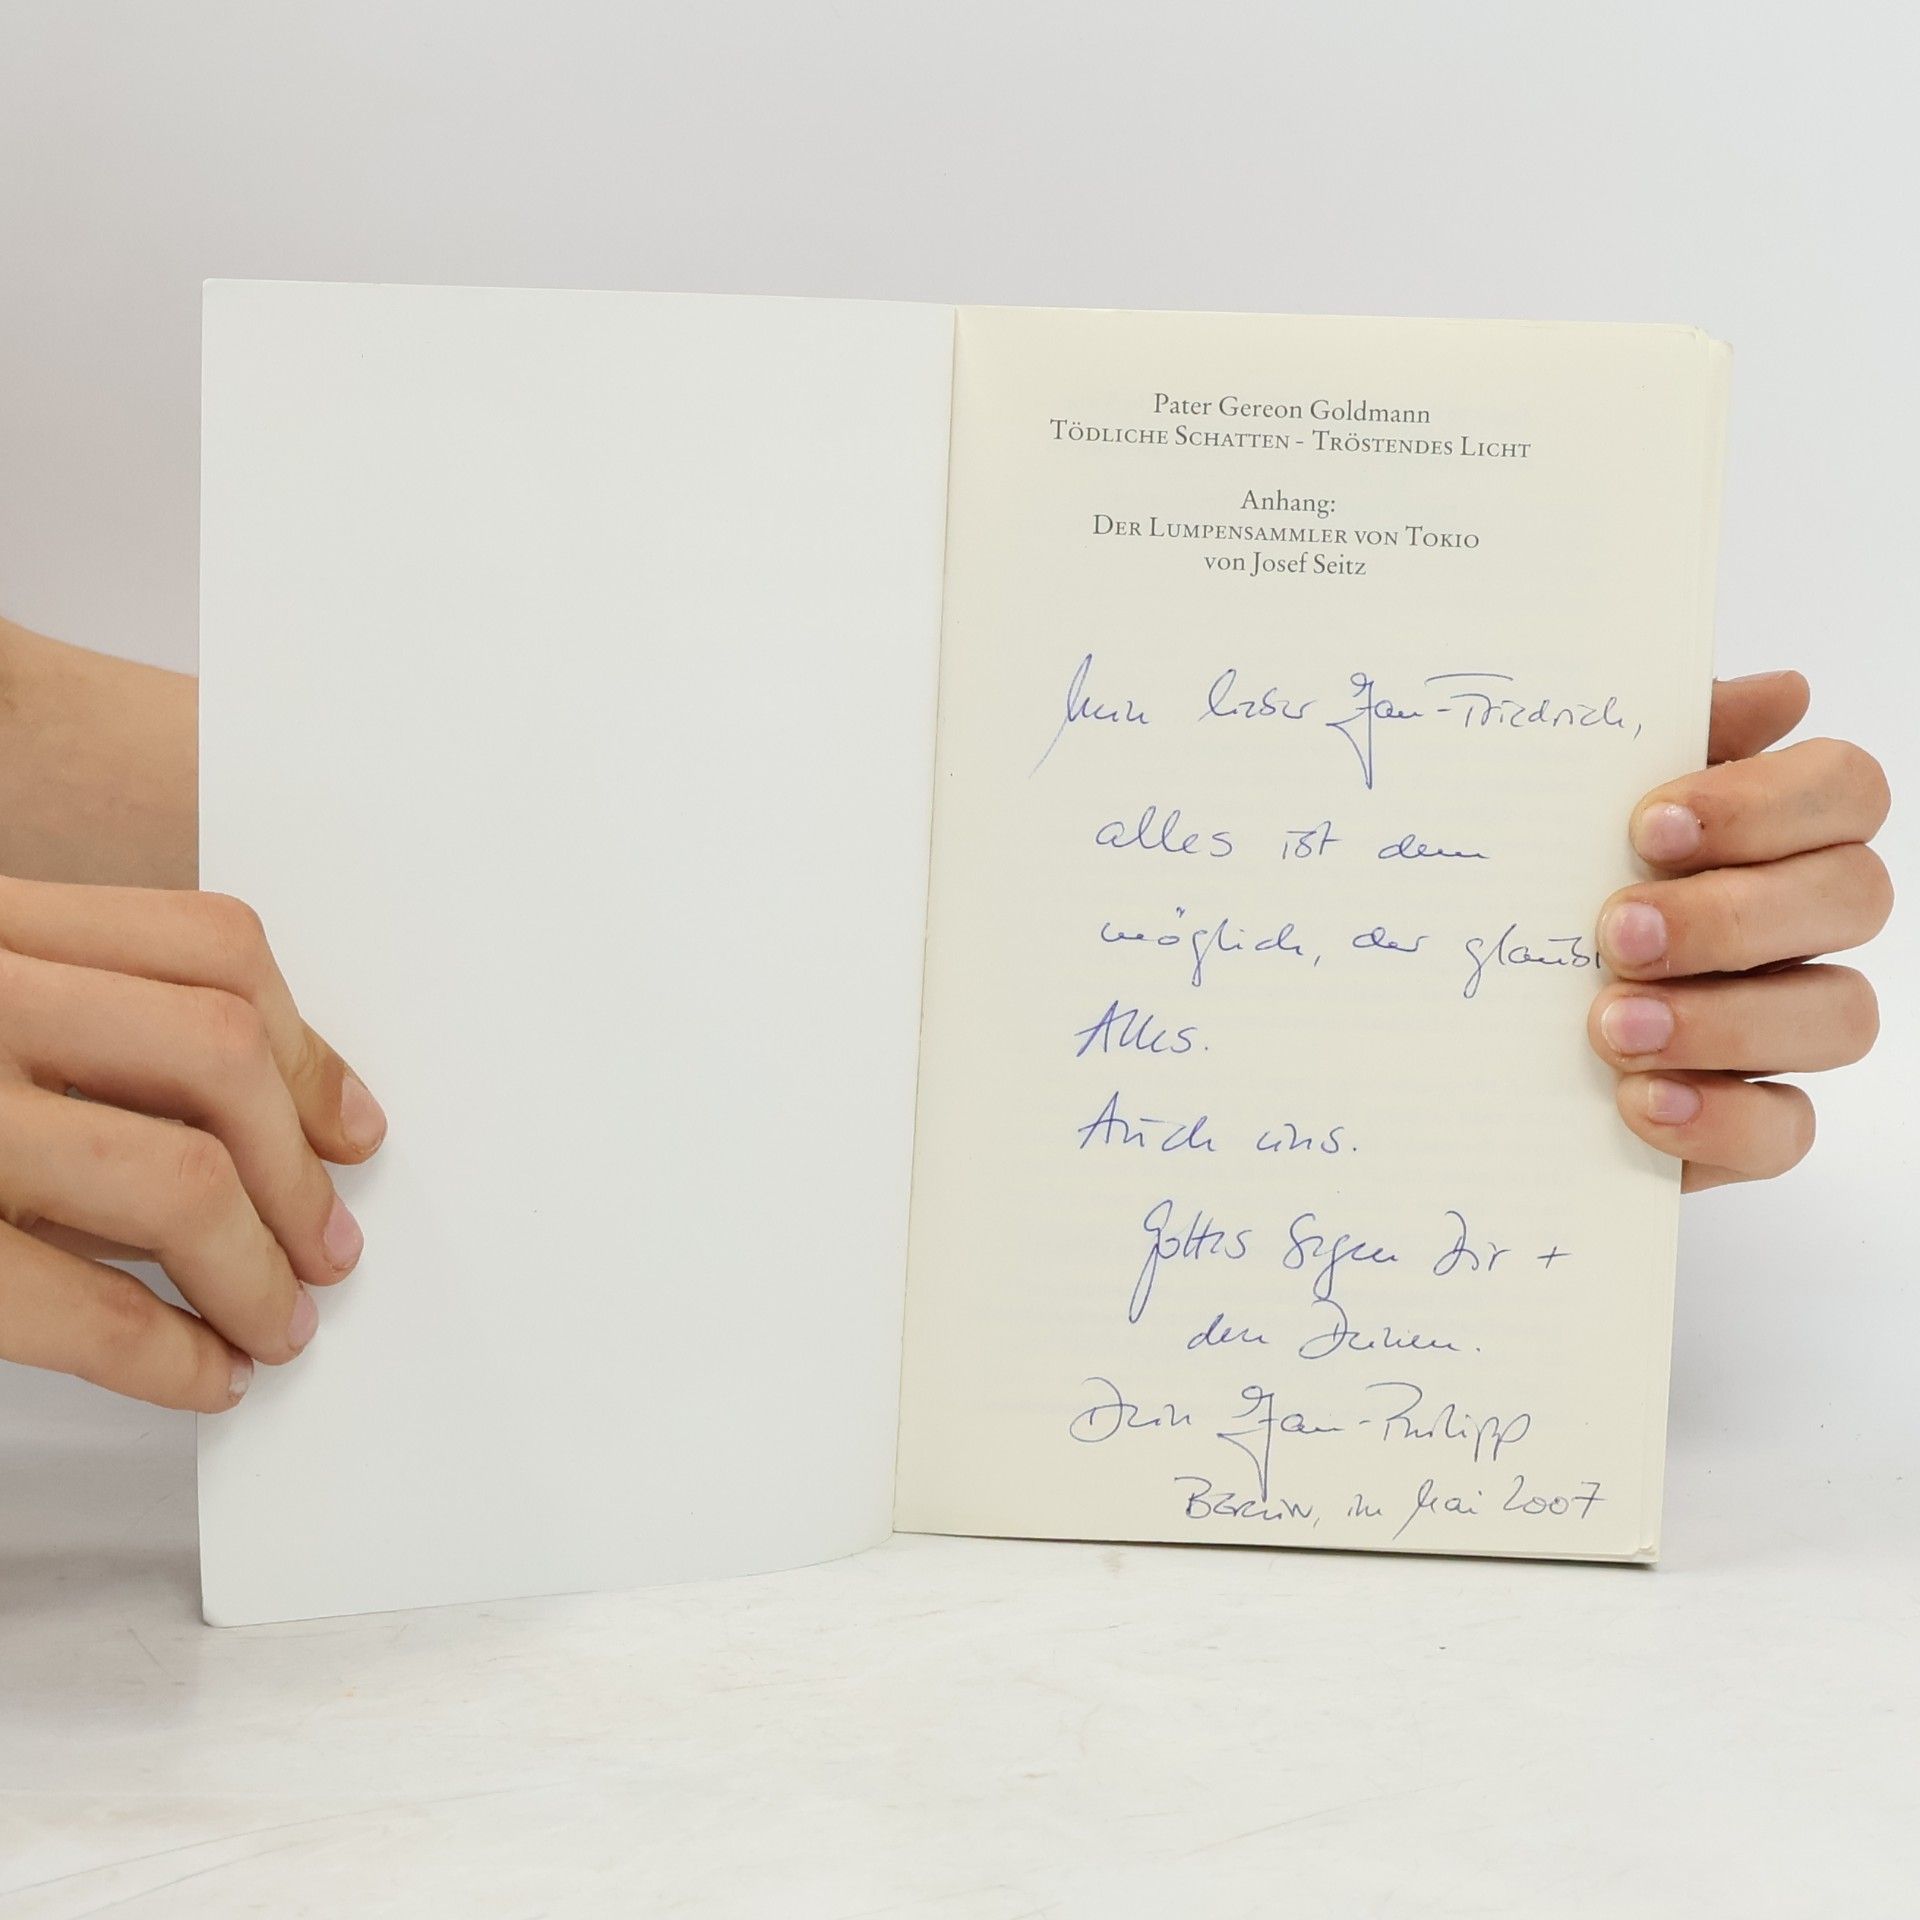 Pater Gereon Goldmann
TÖDLICHE SCHATTEN - TRÖSTENDES LICHT
Anhang:
DER LUMPENSAMMLER VON TOKIO
von Josef Seitz
Mein lieber Jan-Friedrich,
alles ist dem
möglich, der glaubt
Alles.
Auch uns.
Gottes Segen Dir +
den Deinen.
Dein Jan-Philipp
BERLIN, im Mai 2007